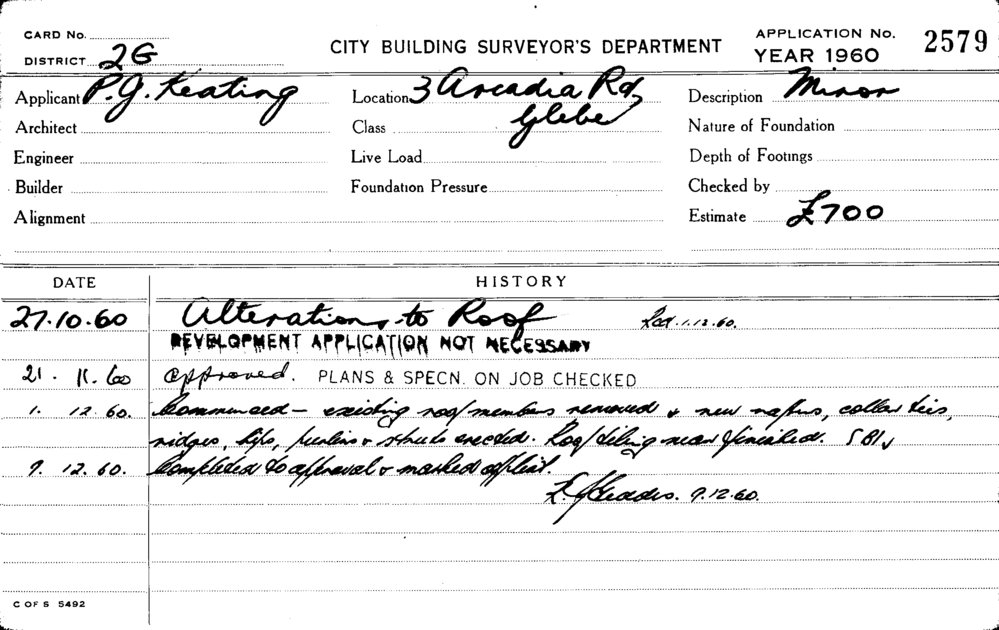 CARD No.
DISTRICT 2G
CITY BUILDING SURVEYOR'S DEPARTMENT
APPLICATION No. 2579
YEAR 1960
Applicant P.J. Keating
Location 3 Arcadia Rd,
Glebe
Description Minor
Architect
Class
Nature of Foundation
Engineer
Live Load
Depth of Footings
Builder
Foundation Pressure
Checked by
Alignment
Estimate £700
DATE HISTORY
27.10.60 Alterations to Roof 1.12.60.
DEVELOPMENT APPLICATION NOT NECESSARY
21. 11. 60 Approved. PLANS & SPECN. ON JOB CHECKED
1. 12. 60. Commenced – existing roof members removed & new rafters, collar ties,
ridges, hips, purlins & struts erected. Roof tiling near finished.
9. 12. 60. Completed to approval & marked off list.
9.12.60.
C OF S 5492